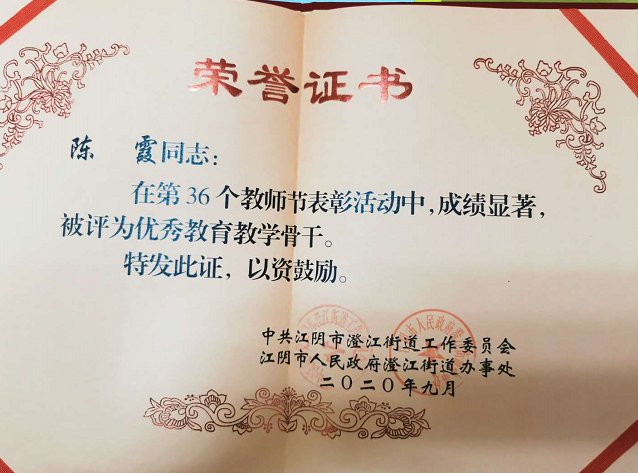 荣誉证书
陈 霞同志：
在第36个教师节表彰活动中，成绩显著，
被评为优秀教育教学骨干。
特发此证，以资鼓励。
中共江阴市澄江街道工作委员会
江阴市人民政府澄江街道办事处
二〇二〇年九月